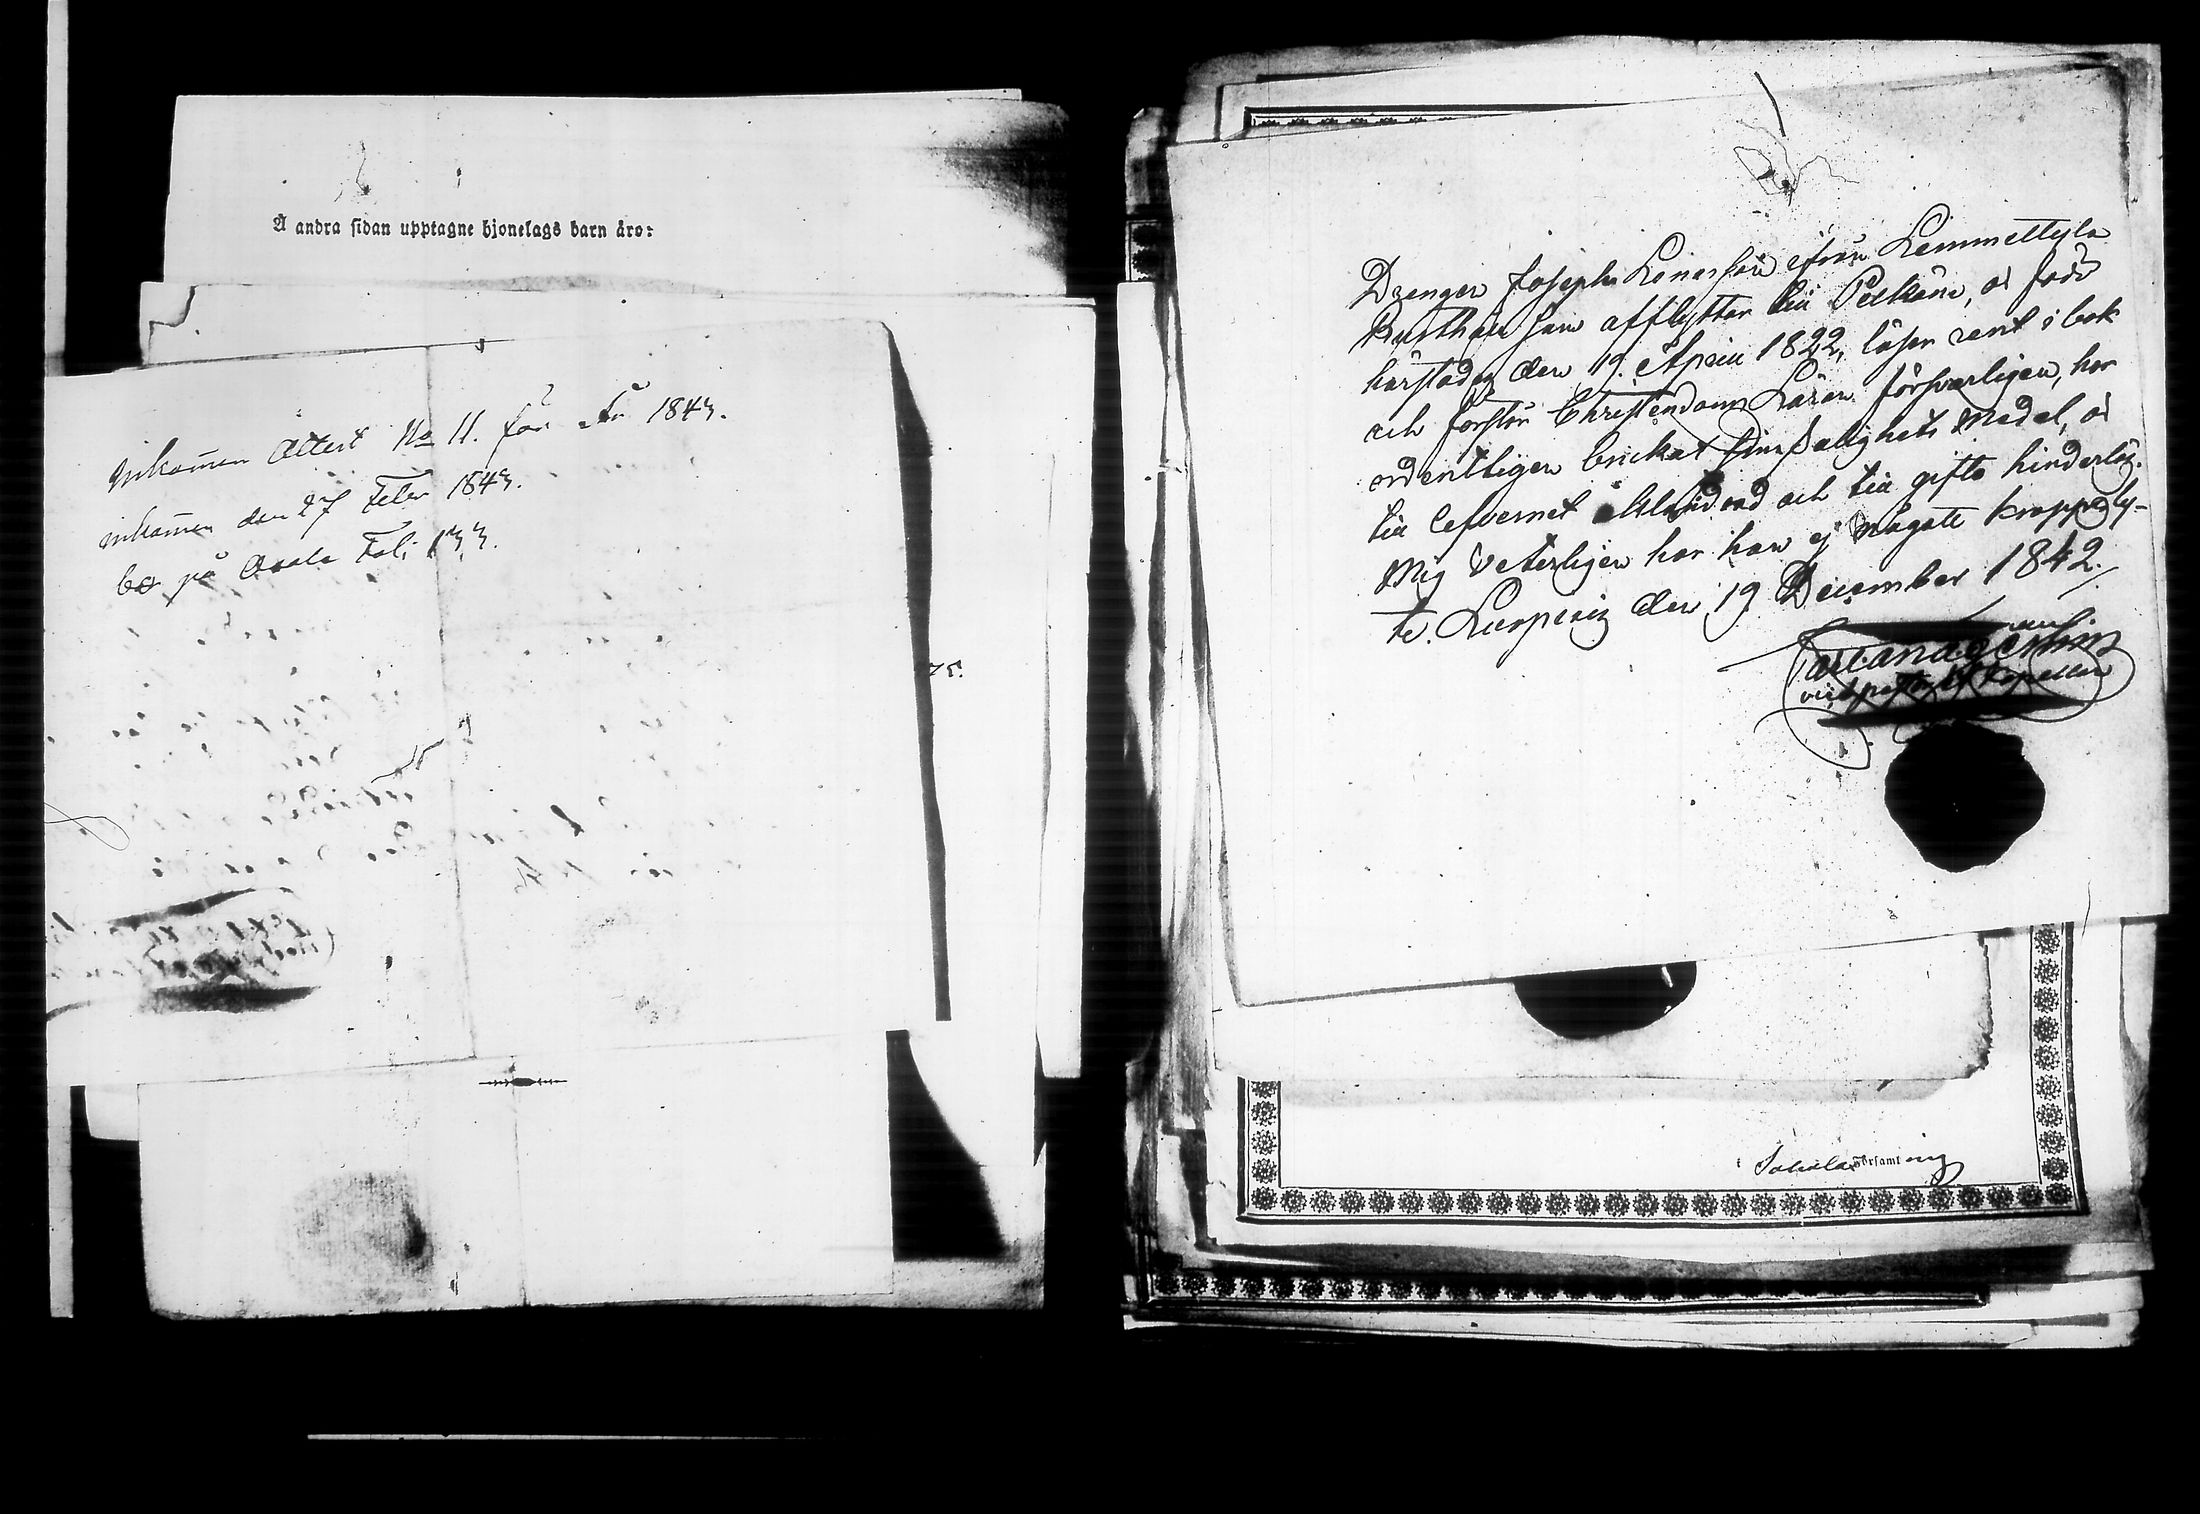 Å andra sidan upptagne hjonelags barn äro:
Inkommen Attest No 11. för År 1843.
inkommen den 27 Febr 1843.
bor på Onola Fol: 133.
75.
Drängen Joseph Lenasson ifrån Lemmettyla
Rusthåll som afflyttar till Pelkäne, är född
härstädes den 19 Aprill 1822, läser rent i bok
och förstår Christendoms Läran försvarligen, har
ordentligen brukat sina Salighets Medel, är
till Lefvernet oklandrad och till gifte hinderlös.
Mig Veterligen har han ej någåt kroppsly-
te. Luopiois den 19 December 1842.
vice pastor Kapellan
Sahalax Församling